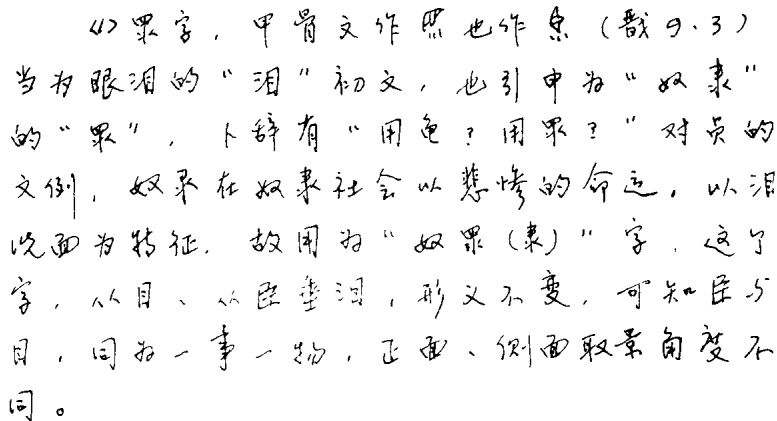 ⑴眔字，甲骨文作 也作 （戬9.3）
当为眼泪的“泪”初文，也引申为“奴隶”
的“眔”，卜辞有“用龟？用眔？”对贞的
文例，奴隶在奴隶社会以悲惨的命运，以泪
洗面为特征，故用为“奴眔（隶）”字，这个
字，从目、从臣垂泪，形义不变，可知臣与
目，同为一事一物，正面、侧面取景角度不
同。